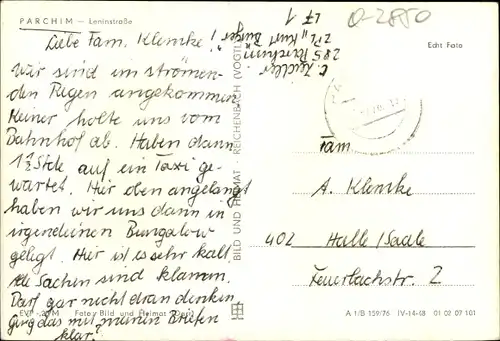 PARCHIM — Leninstraße
Liebe Fam. Klemke!
Wir sind im strömen-
den Regen angekommen.
Keiner holte uns vom
Bahnhof ab. Haben dann
1½ Stde auf ein Taxi ge-
wartet. Hier oben angelangt
haben wir uns dann in
irgendeinen Bungalow
gelegt. Hier ist es sehr kalt
die Sachen sind klamm.
Darf gar nicht dran denken,
Ging das mit meinen Briefen
klar?
EVP -,20 M Foto: Bild und Heimat
BILD UND HEIMAT REICHENBACH (VOGTL)
285 Parchim
ZPL „Kurt Bürger"
LF 1
O-2850
Echt Foto
Fam.
A. Klemke
402 Halle/Saale
Feuerbachstr. 2
A 1/B 159/76 IV-14-48 01 02 07 101